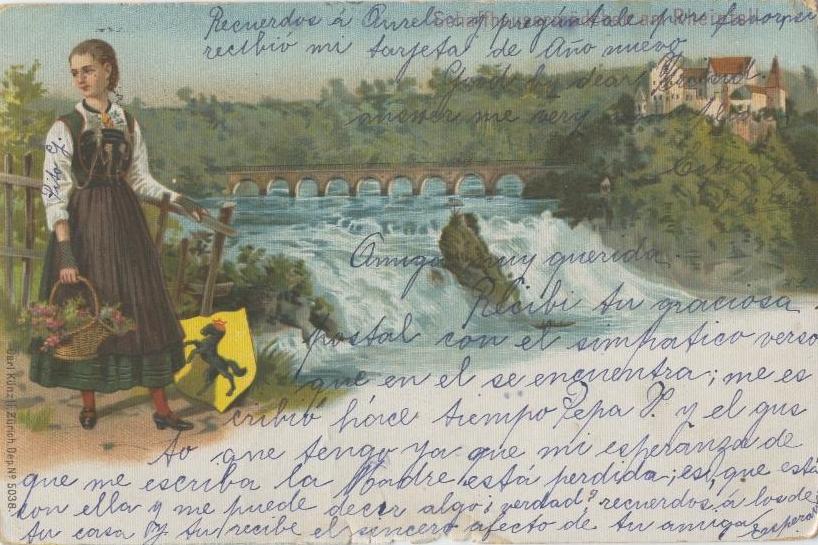 Recuerdos á Aurel y pregúntale por
recibió mi tarjeta de Año nuevo
Good by dear friend.
answer me very
Schaffhausen am Rheinfall
Amiga muy querida.
Recibi tu graciosa
postal con el simpatico verso
que en el se encuentra; me es
cribió háce tiempo Pepa V. y el gus
to que tengo ya que mi esperanza de
que me escriba la Madre está perdida; es que está
con ella y me puede decir algo; verdad? recuerdos á los de
tu casa y tu recibe el sincero afecto de tu amiga
Carl Künzli, Zürich. Dep. Nº 5038.